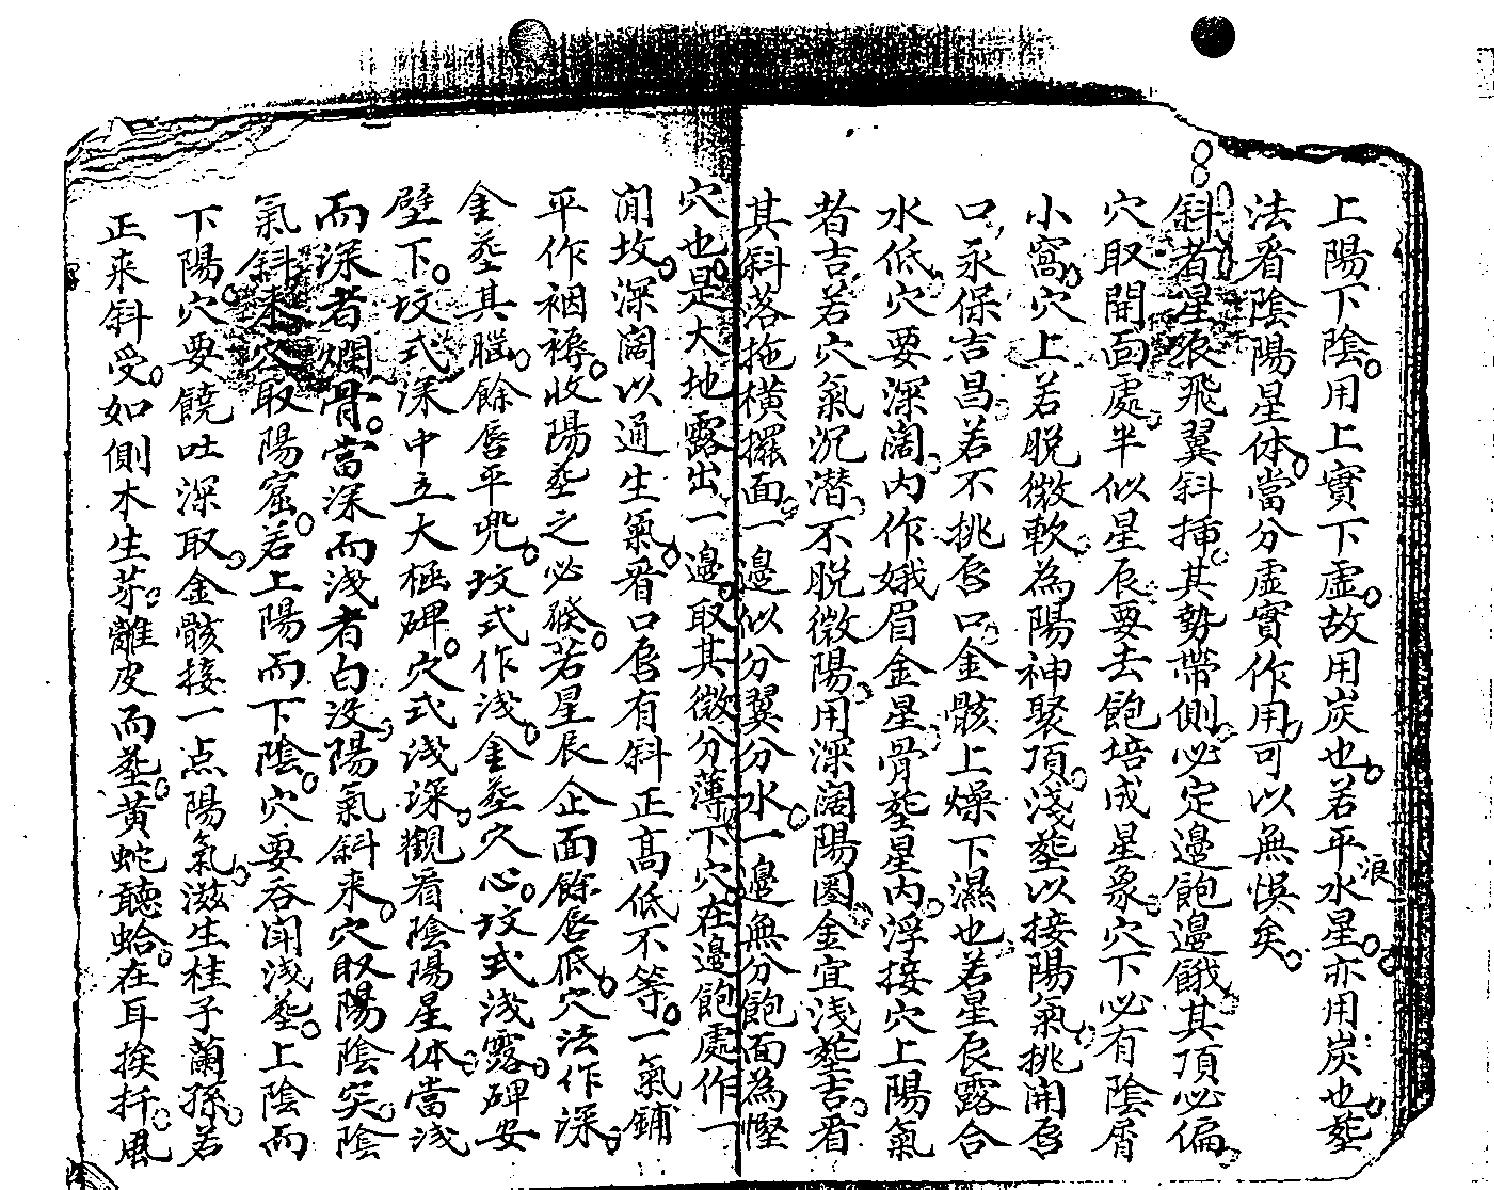 上陽下陰用上實下虛故用炭也若平水星亦用炭也塟
浪
法看陰陽星体當分虛實作用可以無悞矣
斜者星辰飛翼斜揷其勢帶側必定邊飽邊餓其頂必偏
穴取開面處半似星辰要去飽培成星象穴下必有陰屑
小窩穴上若脫微軟為陽神聚頂淺塟以接陽氣挑開唇
口永保吉昌若不挑唇口金骸上燥下濕也若星辰露合
水低穴要深濶內作娥眉金星骨塟星內浮接穴上陽氣
者吉若穴氣沉潜不脫微陽用深濶陽圈金宜淺塟吉看
其斜落拖橫攞面一邊似分翼分水一邊無分飽面為慳
穴也是大地露出一邊取其微分薄下穴在邊飽處作一
閒坟深濶以通生氣看口唇有斜正高低不等一氣鋪
平作裀褥收陽塟之必發若星辰企面餘唇低穴法作深
金塟其腦餘唇平兜坟式作淺金塟穴心坟式淺露碑安
壁下坟式深中立大極碑穴式淺深觀看陰陽星体當淺
而深者爛骨當深而淺者白没陽氣斜來穴取陽陰突陰
氣斜來穴取陽窟若上陽而下陰穴要吞開淺塟上陰而
下陽穴要饒吐深取金骸接一点陽氣滋生桂子蘭孫若
正来斜受如側木生芽離皮而塟黃蛇聽蛤在耳挨扦風